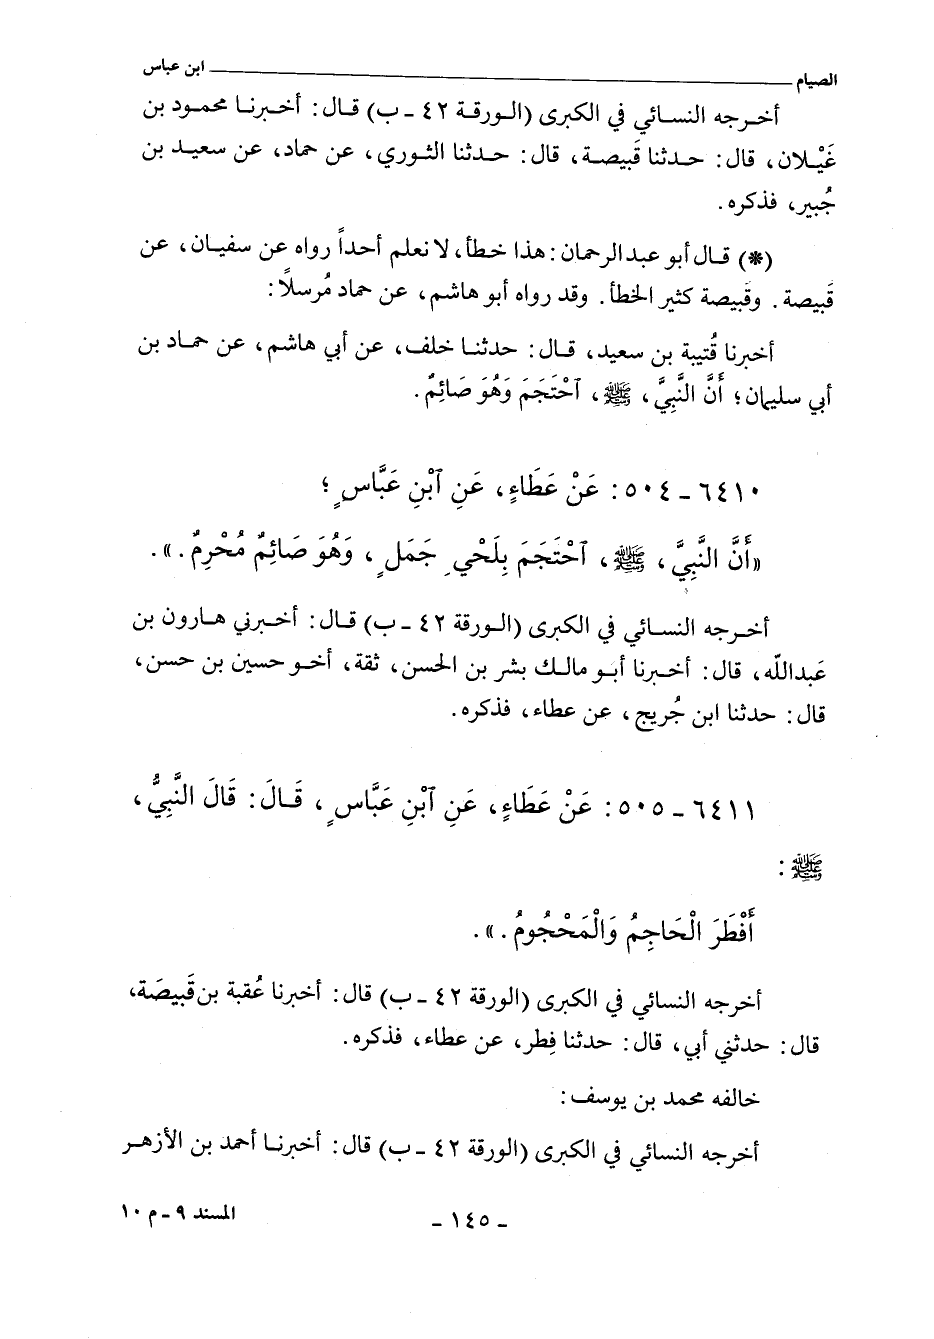 الصيام ــــــــــــــــــــ ابن عباس
أخرجه النسائي في الكبرى (الورقة ٤٢ ـ ب) قال: أخبرنا محمود بن
غَيْلان، قال: حدثنا قَبيصة، قال: حدثنا الثوري، عن حماد، عن سعيد بن
جُبير، فذكره.
(*) قال أبو عبدالرحمان: هذا خطأ، لا نعلم أحداً رواه عن سفيان، عن
قَبيصة. وقَبيصة كثير الخطأ. وقد رواه أبو هاشم، عن حماد مُرسلاً:
أخبرنا قُتيبة بن سعيد، قال: حدثنا خلف، عن أبي هاشم، عن حماد بن
أبي سليمان؛ أَنَّ النَّبِيَّ، ﷺ، ٱحْتَجَمَ وَهُوَ صَائِمٌ.
٦٤١٠ ـ ٥٠٤: عَنْ عَطَاءٍ، عَنِ ٱبْنِ عَبَّاسٍ؛
«أَنَّ النَّبِيَّ، ﷺ، ٱحْتَجَمَ بِلَحْيِ جَمَلٍ، وَهُوَ صَائِمٌ مُحْرِمٌ.».
أخرجه النسائي في الكبرى (الورقة ٤٢ ـ ب) قال: أخبرني هارون بن
عَبدالله، قال: أخبرنا أبو مالك بشر بن الحسن، ثقة، أخو حسين بن حسن،
قال: حدثنا ابن جُريج، عن عطاء، فذكره.
٦٤١١ ـ ٥٠٥: عَنْ عَطَاءٍ، عَنِ ٱبْنِ عَبَّاسٍ، قَالَ: قَالَ النَّبِيُّ،
ﷺ:
أَفْطَرَ الْحَاجِمُ وَالْمَحْجُومُ.».
أخرجه النسائي في الكبرى (الورقة ٤٢ ـ ب) قال: أخبرنا عُقبة بن قَبيصَة،
قال: حدثني أبي، قال: حدثنا فِطر، عن عطاء، فذكره.
خالفه محمد بن يوسف:
أخرجه النسائي في الكبرى (الورقة ٤٢ ـ ب) قال: أخبرنا أحمد بن الأزهر
ـ ١٤٥ ـ
المسند ٩ ـ م ١٠